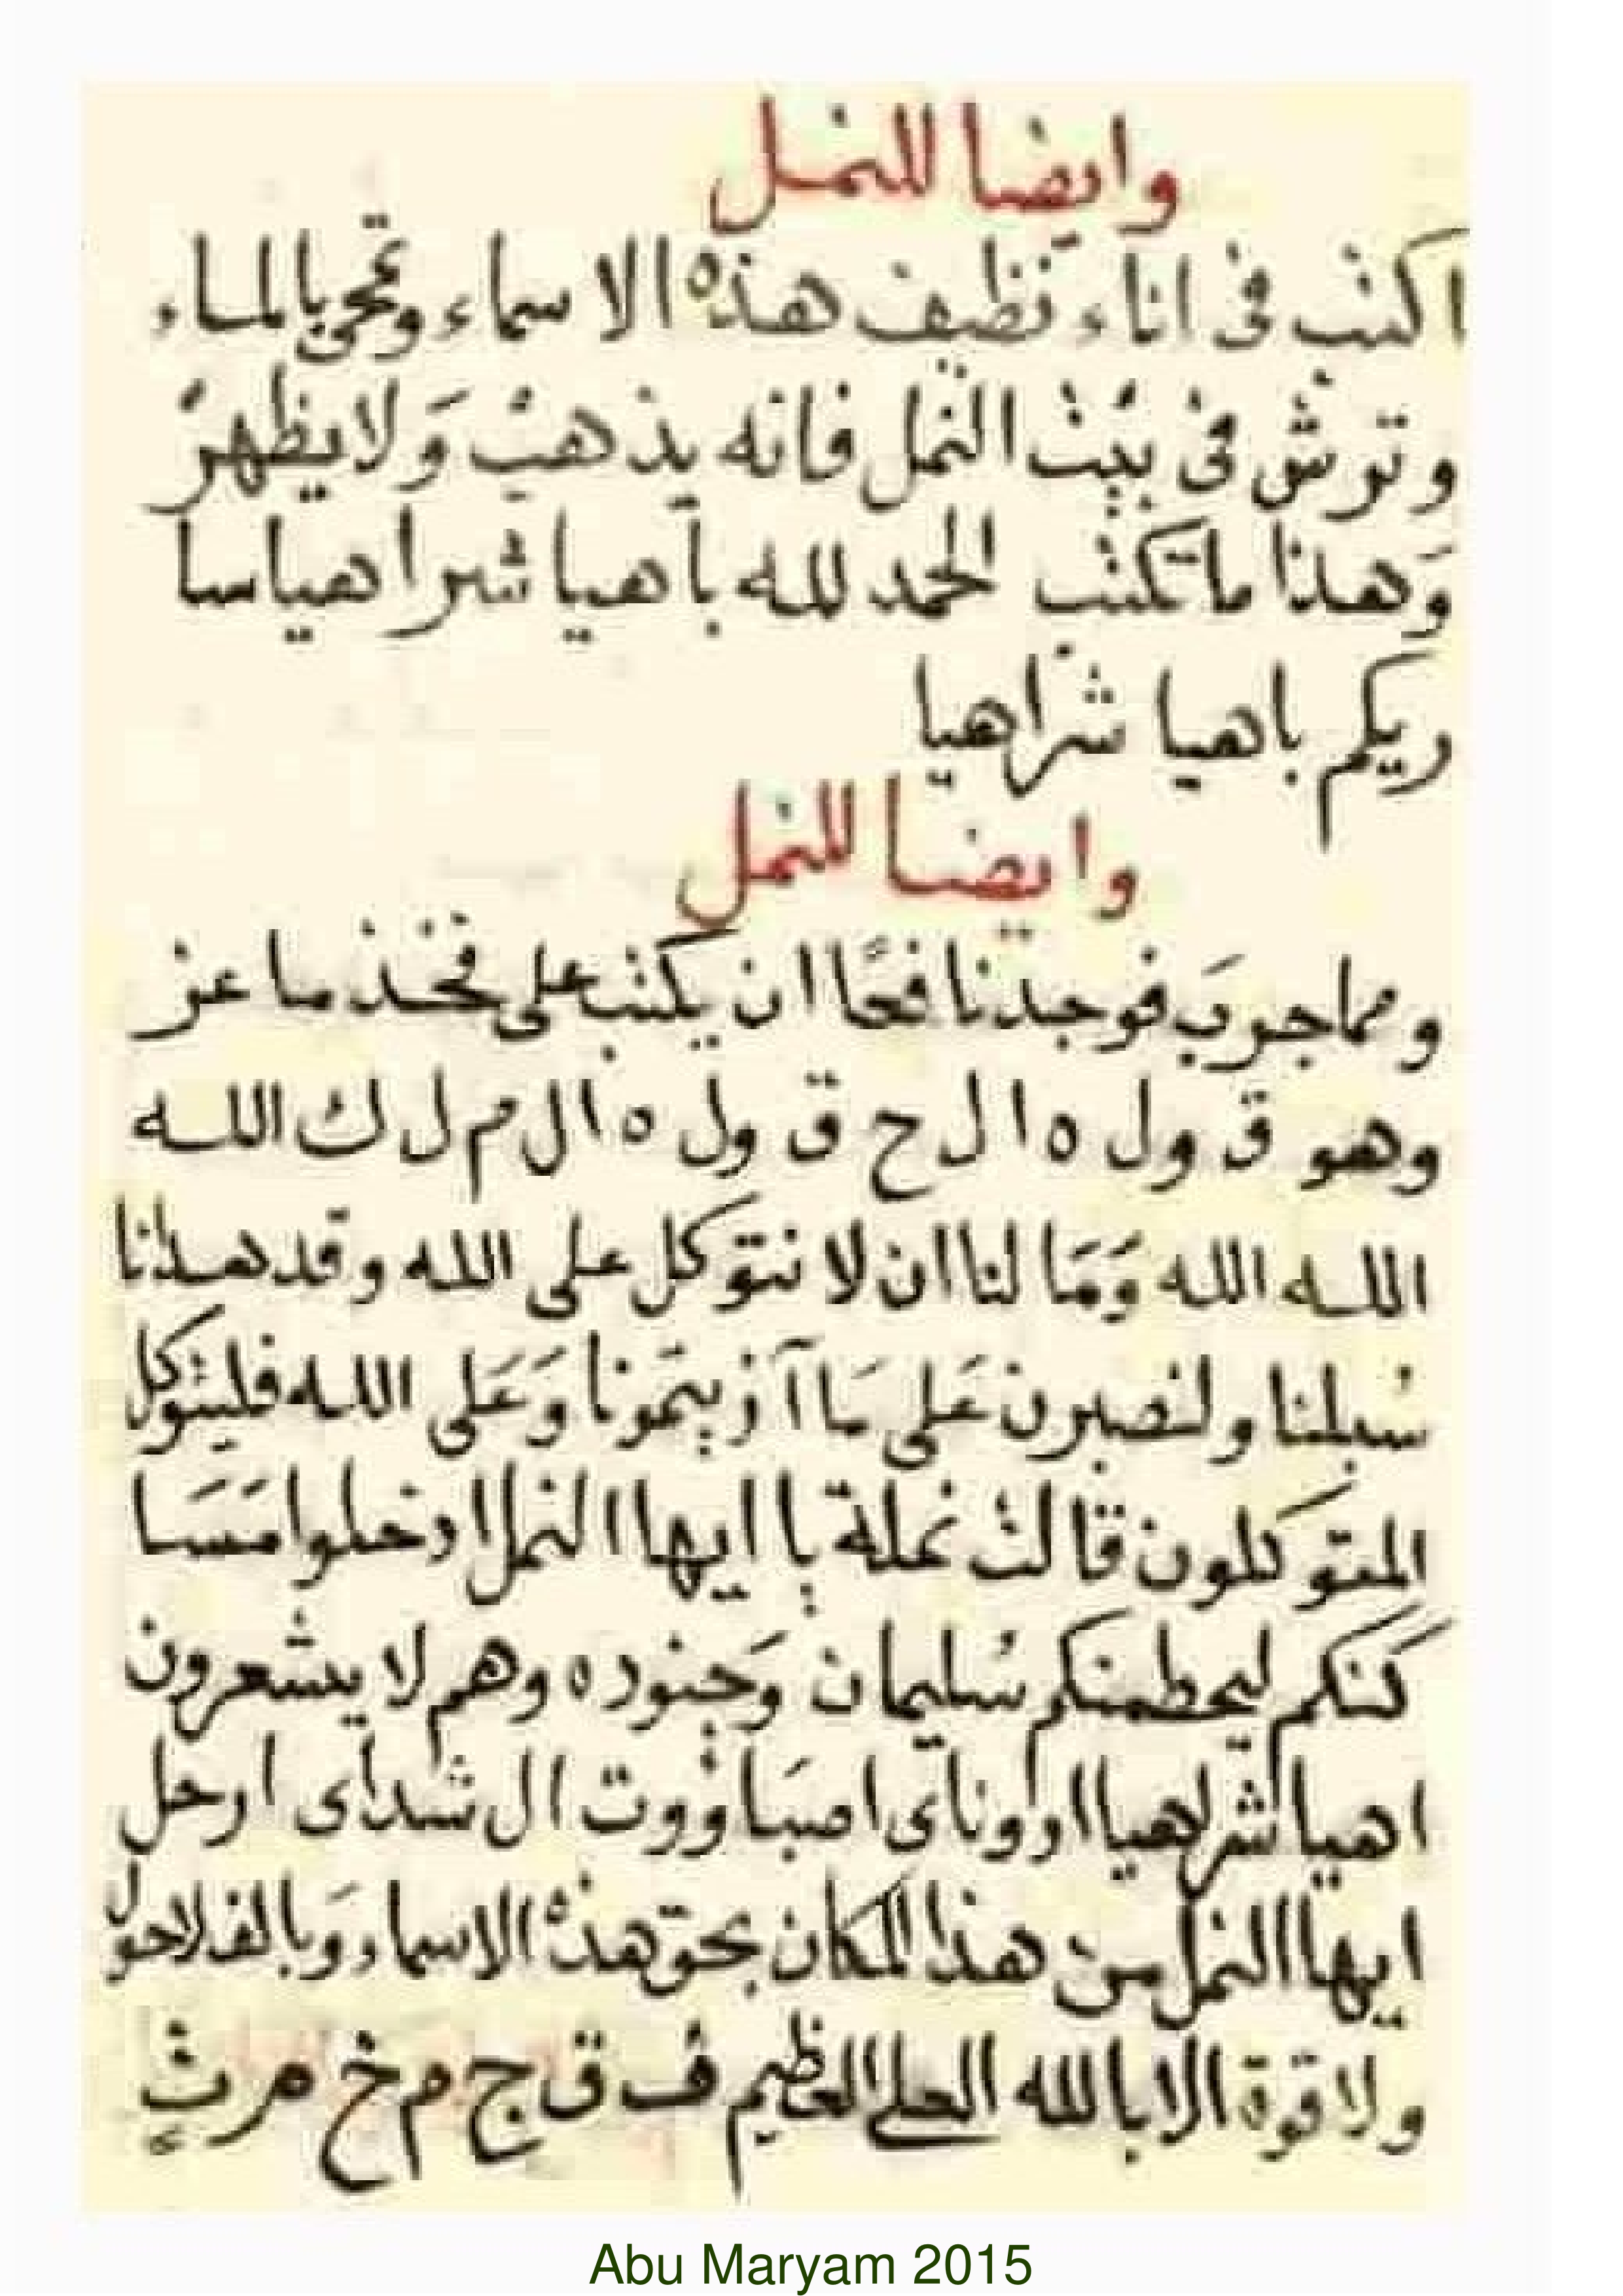 وايضا للنمل
اكتب فى اناء نظيف هذه الاسماء وتمحى بالماء
وترش فى بيت النمل فانه يذهب وَلا يظهر
وَهذا ما تكتب الحمد لله باهيا شراهيا سا
ريكم باهيا شراهيا
وايضا للنمل
ومما جربَ فوجد نافعًا ان يكتب على فخذ ماعز
وهو ق ول ه ا ل ح ق ول ه ا ل م ل ك اللـه
اللـه الله وَمَا لنا ان لا نتوكل على الله وقد هدانا
سُبلنا ولنصبرن عَلى مَا آزيتمَونا وَعَلى اللـه فليتوكل
المتوكلون قالت نملة يا ايها النمل ادخلوا مَسَا
كنكم ليحطمنكم سُليمان وَجنوده وهم لا يشعرون
اهيا شراهيا ادوناى اصبَاووت ال شداى ارحل
ايها النمل من هذا المكان بحق هذه الاسماء وَبالف لاحول
ولا قوة الا بالله العلى العظيم ف ق ج م خ م ث
Abu Maryam 2015